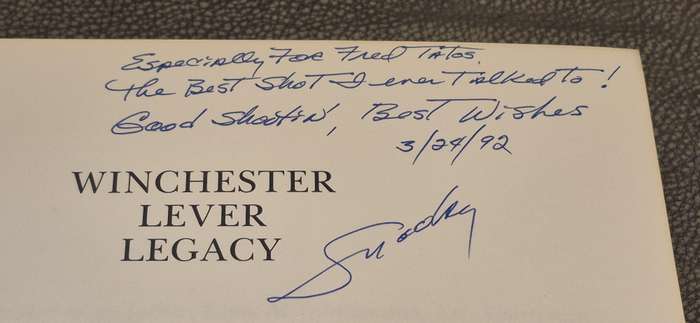 Especially For Fred Titos,
the Best Shot I ever Talked to!
Good Shootin', Best Wishes
3/24/92
WINCHESTER
LEVER
LEGACY
Snooky